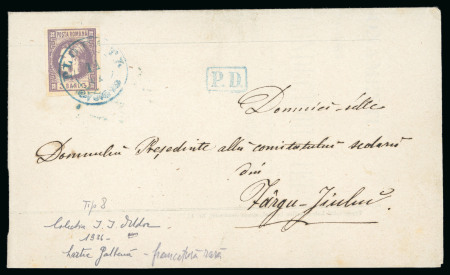 POSTA ROMANA
P.D.
Domniei-séle
Domnului Președinte allu comitatului scolaru
din
Târgu-Jiului
Tip 8
Colectia I. I.
1926
hartie galbenă - francatură rară